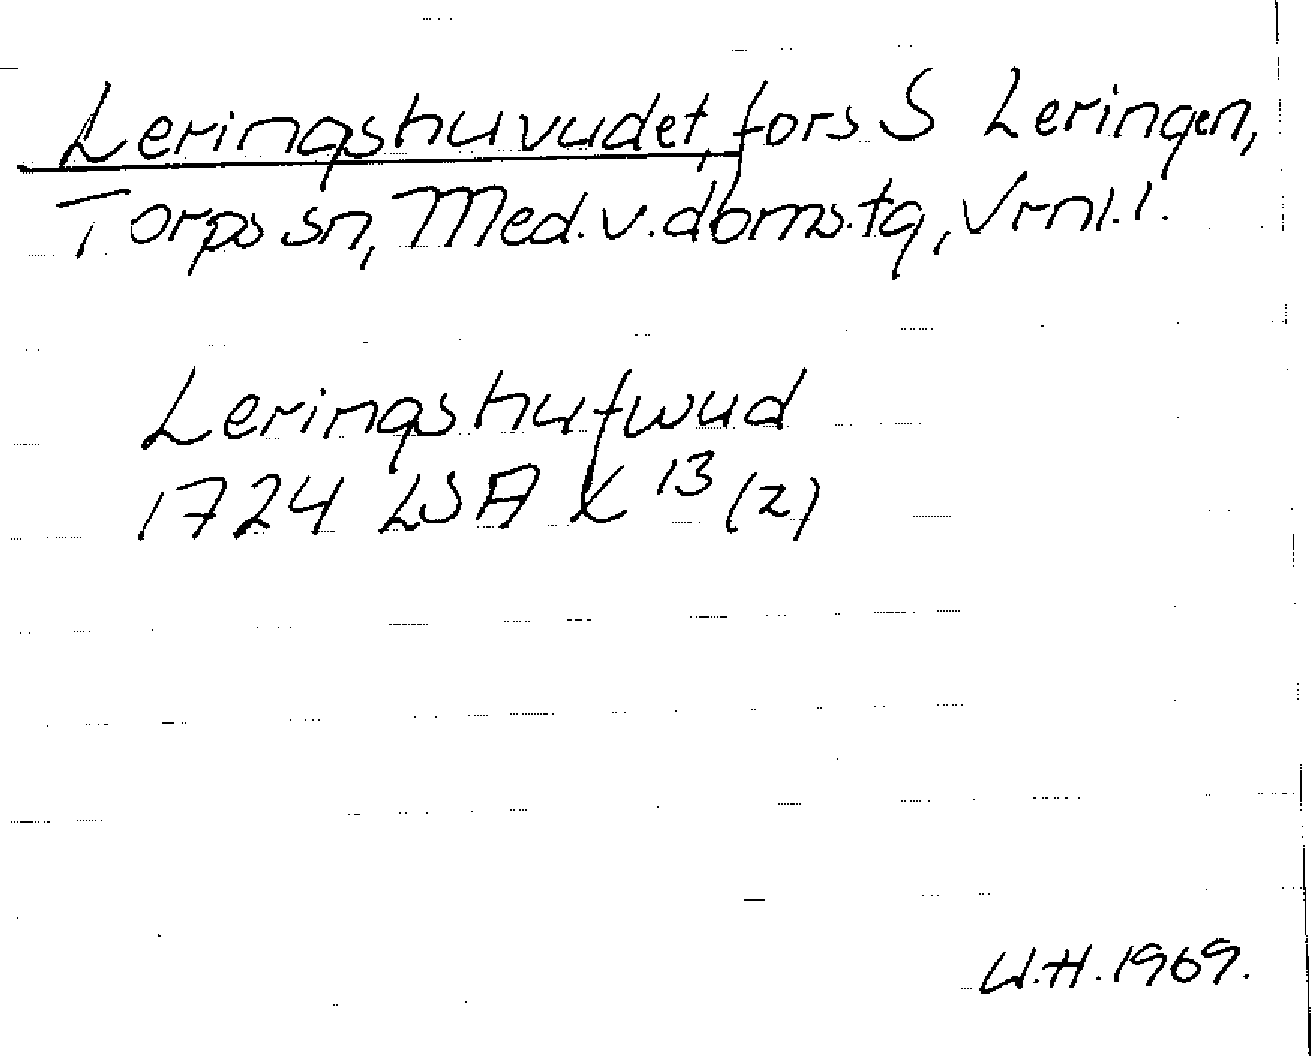 Leringshuvudet, fors S Leringen,
Torps sn, Med.v.doms.tg, Vrnl.l.
Leringshufwud
1724 LSA X 13 (2)
U.H. 1969.